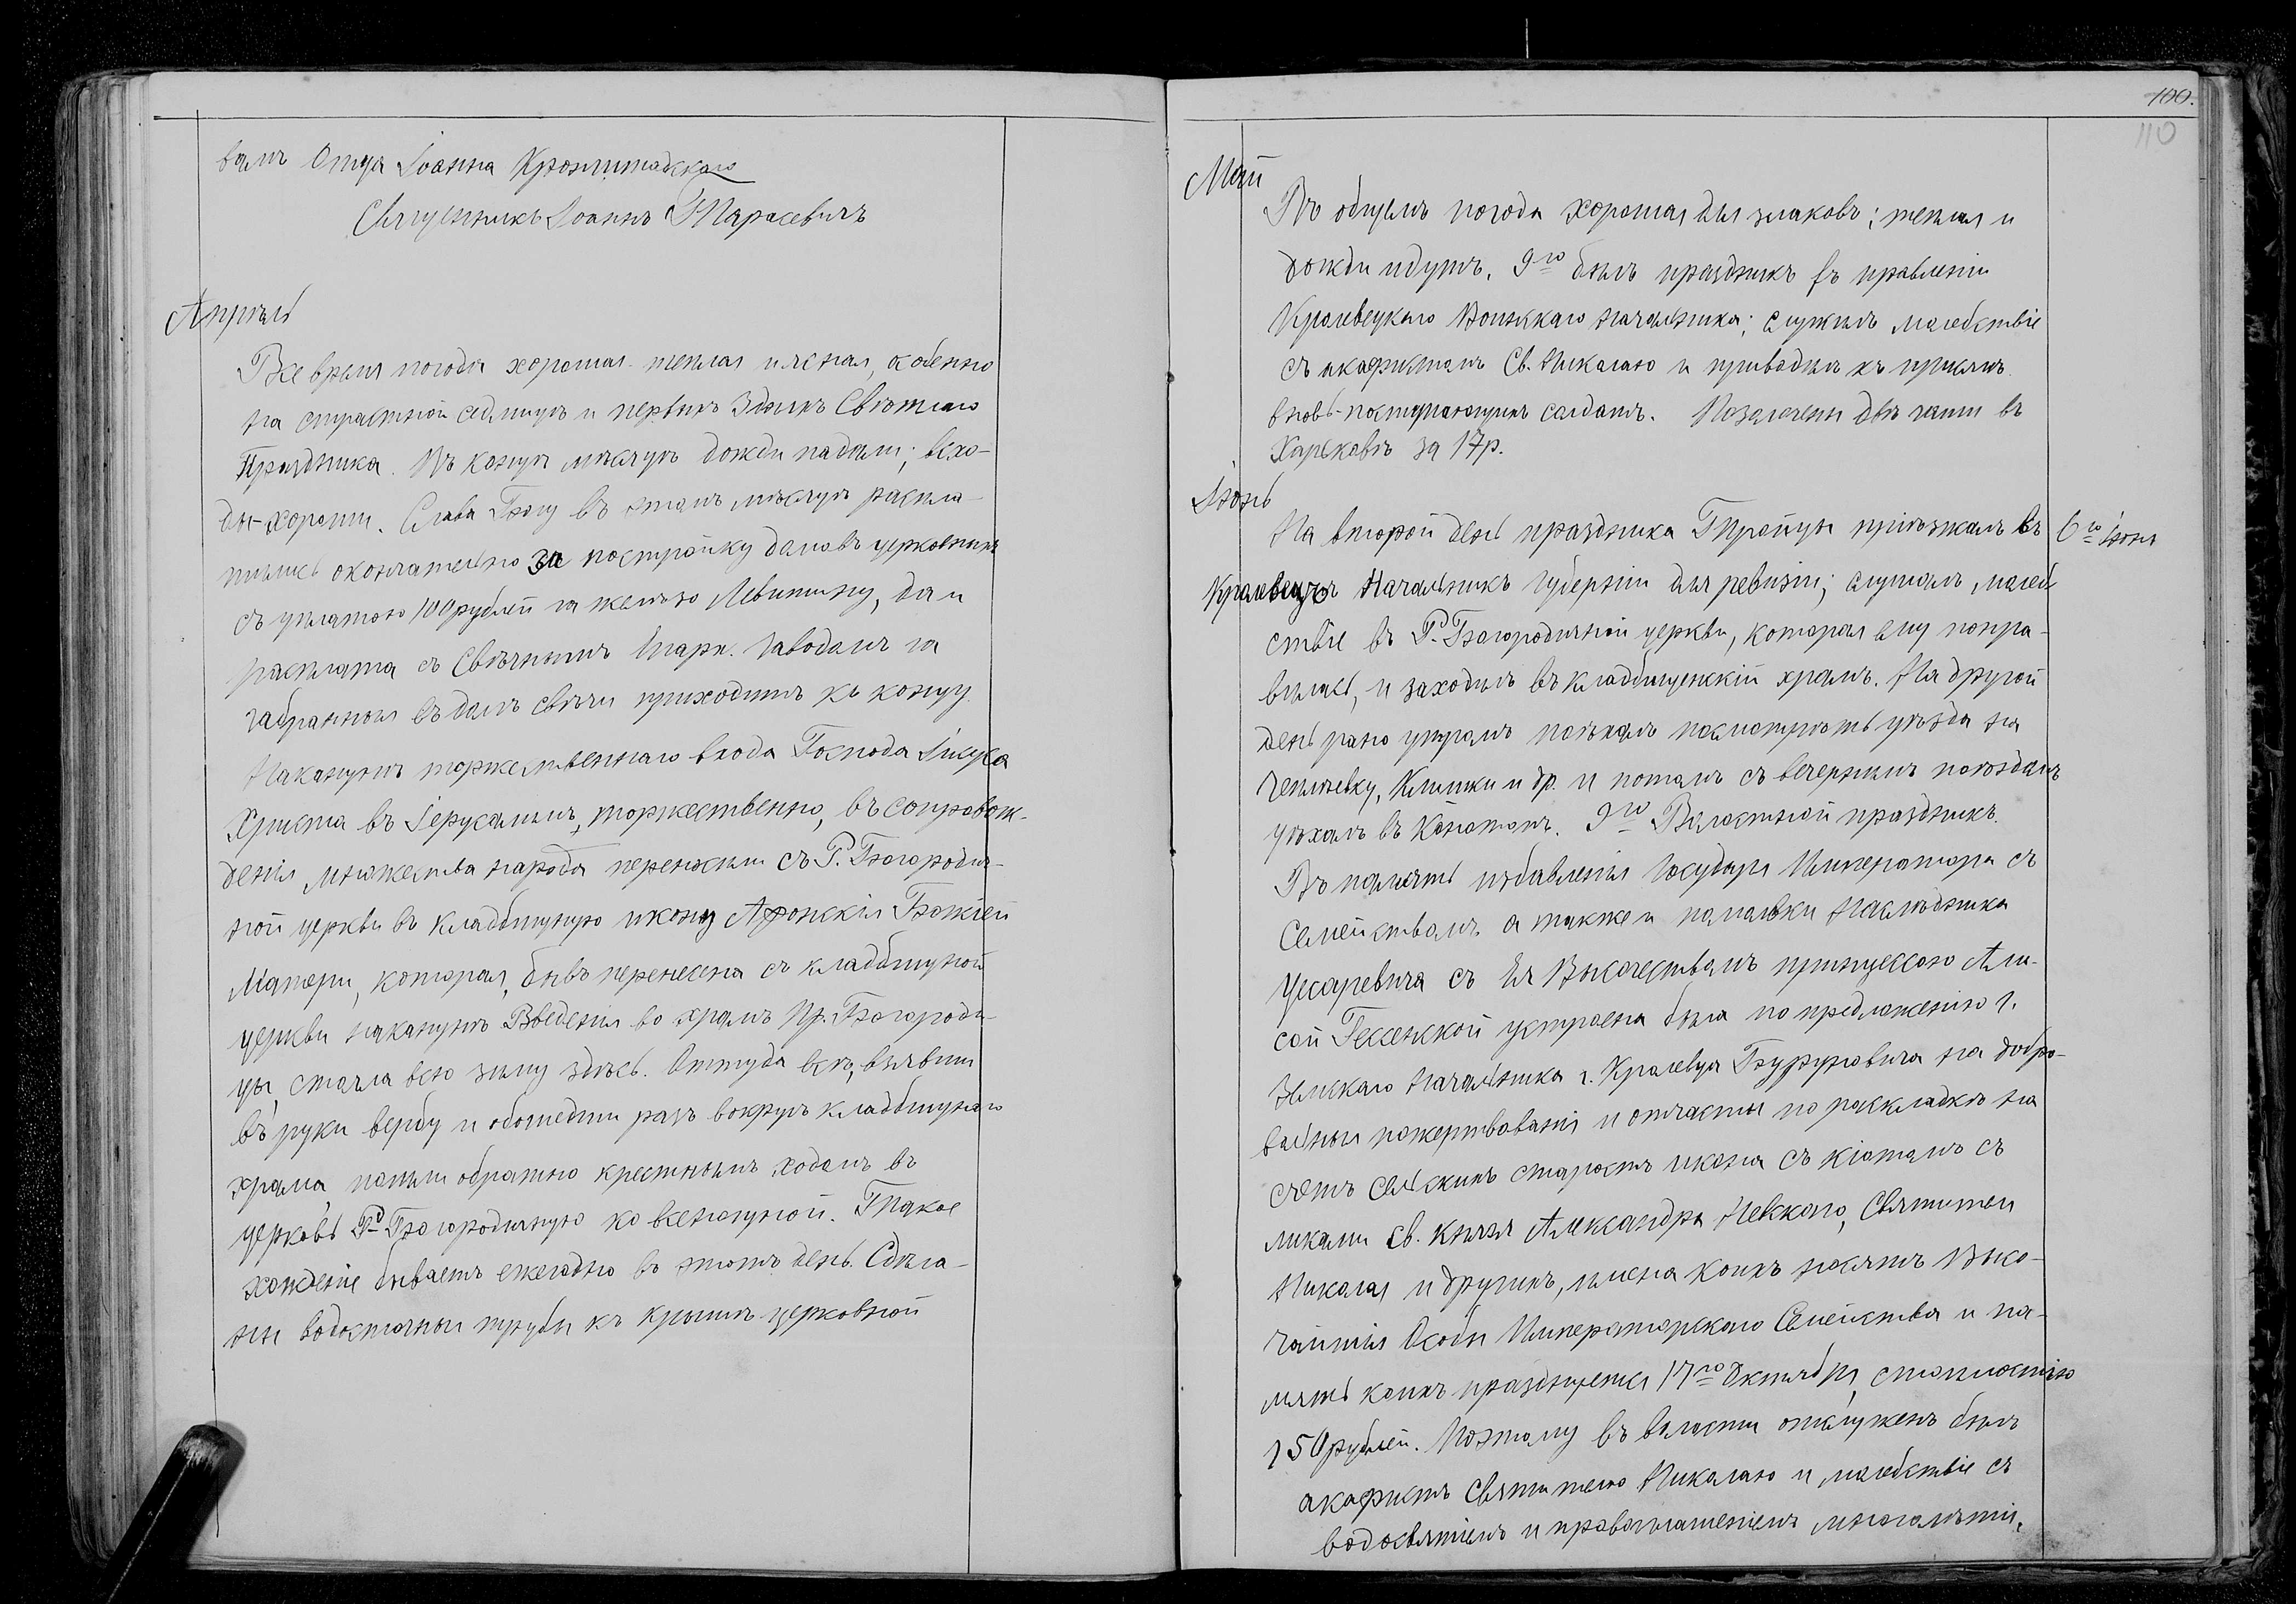 вамъ Отца Іоанна Кронштадскаго
Священникъ Іоаннъ Тарасевичъ
Апрѣль
Все время погода хорошая теплая и ясная, особенно
на страстной седмицѣ и первыхъ 3 дняхъ Свѣтлаго
Праздника. Въ концѣ мѣсяца дожди падали; всхо-
ды - хороши. Слава Богу въ этомъ мѣсяцѣ распла-
тились окончательно за постройку домовъ церковныхъ
съ уплатою 100 рублей за желѣзо Левитину, да и
расплата съ Свѣчнымъ Епарх. Заводомъ за
забранныя въ домъ свѣчи приходитъ къ концу.
Наканунѣ торжественнаго входа Господа Іисуса
Христа въ Іерусалимъ, торжественно, въ сопровож-
деніи множества народа переносили съ Р. Богородич-
ной церкви въ кладбищную икону Афонскія Божіей
Матери, которая, бывъ перенесена съ кладбищной
церкви наканунѣ Введенія во храмъ Пр. Богороди-
цы, стояла всю зиму здѣсь. Оттуда всѣ, взявши
въ руки вербу и обошедши разъ вокругъ кладбищнаго
храма, пошли обратно крестнымъ ходомъ въ
церковь Рд. Богородичную ко всенощной. Такое
хожденіе бываетъ ежегодно въ этотъ день. Сдѣла-
ны водосточныя трубы къ крышѣ церковной
100.
110
Май
Въ общемъ погода хорошая для злаковъ; теплая и
дожди идутъ. 9го былъ праздникъ въ правленіи
Кролевецкаго Воинскаго Начальника; служилъ молебствіе
съ акафистомъ Св. Николаю и приводилъ къ присягѣ
вновь-поступающихъ солдатъ. Позолочены двѣ чаши въ
Харьковѣ за 17 р.
Іюнь
На второй день праздника Тройцы пріѣзжалъ въ 6го Іюня
Кролевецъ Начальникъ Губерніи для ревизіи; слушалъ молеб-
ствіе въ Рд. Богородичной церкви, которая ему понра-
вилась, и заходилъ въ кладбищенскій храмъ. На другой
день рано утромъ поѣхалъ посмотрѣть уѣзда на
Чепліевку, Клишки и др. и потомъ съ вечернимъ поѣздомъ
уѣхалъ въ Конотопъ. 9го Волостной праздникъ.
Въ память избавленія Государя Императора съ
Семействомъ а также и помолвки Наслѣдника
Цесаревича съ Ея Высочествомъ принцессою Али-
сой Гессенской устроена была по предложенію г.
Земскаго Начальника г. Кролевца Бузуновича на добро-
вольныя пожертвованія и отчасти по раскладкѣ на
счетъ сельскихъ старостъ икона съ кіотомъ съ
ликами св. Князя Александра Невскаго, Святителя
Николая и другихъ, имена коихъ носятъ Высо-
чайшія Особы Императорскаго Семейства и па-
мять коихъ празднуется 17го Октября, стоимостію
150 рублей. Поэтому въ волости отслуженъ былъ
акафистъ Святителю Николаю и молебствіе съ
водосвятіемъ и провозглашеніемъ многолѣтія,